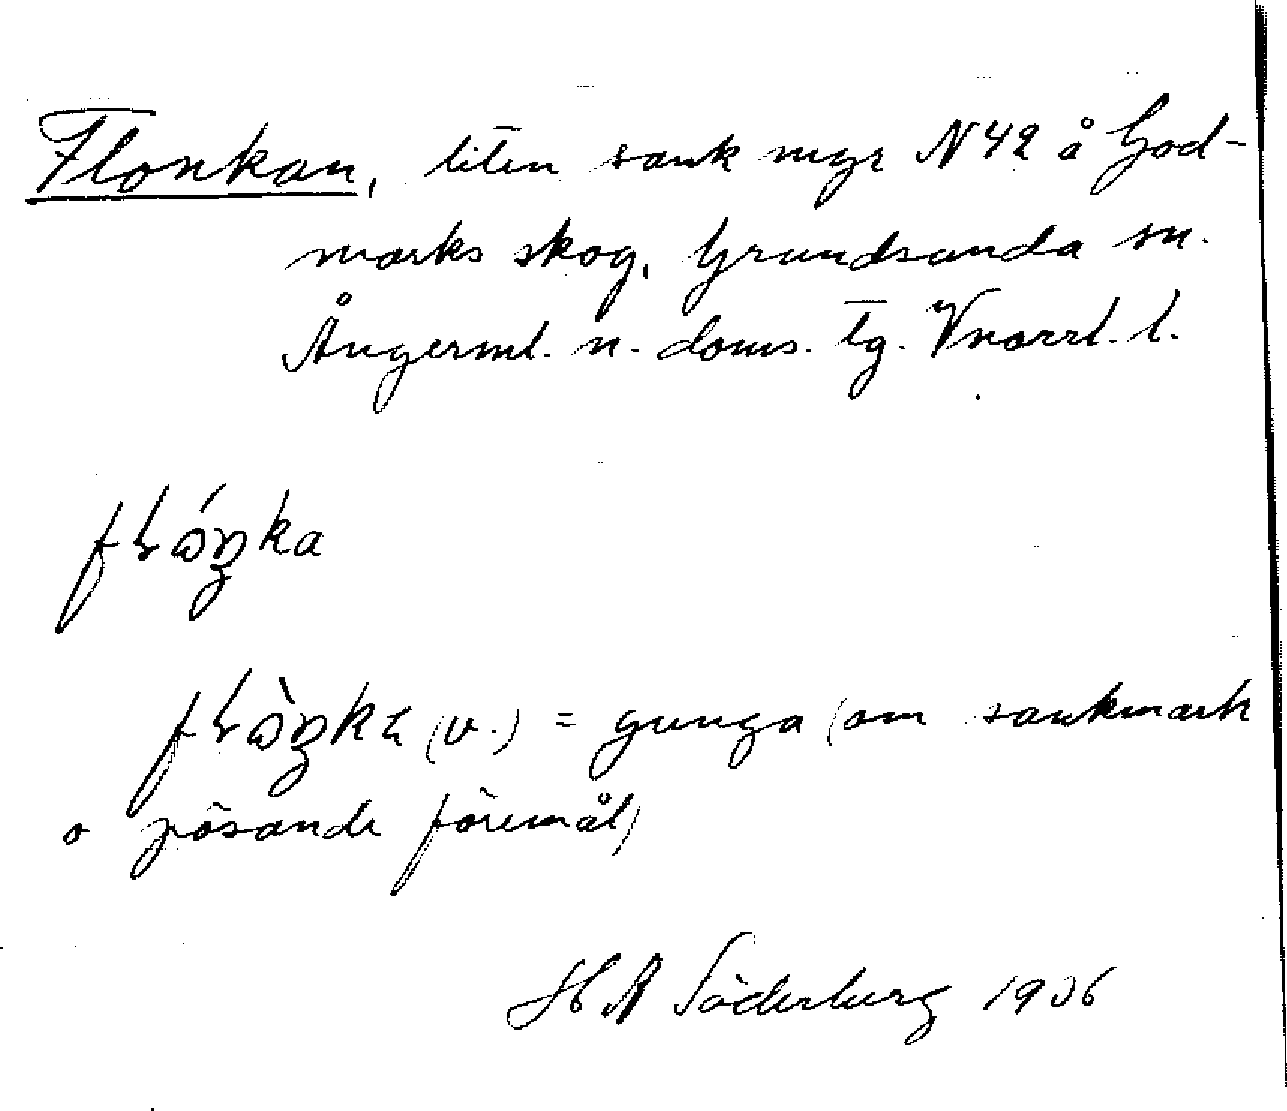 Flonkan, liten sank myr N 42 å God-
marks skog, Grundsunda sn.
Ångerml. n. doms. tg. Vnorrl. l.
flóŋka
flòŋkä (v.) = gunga (om sankmark
o pösande föremål)
H A Söderberg 1906